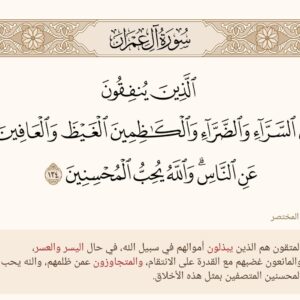 سُورَةُ آلِ عِمْرَان
ٱلَّذِينَ يُنفِقُونَ
ٱلسَّرَّآءِ وَٱلضَّرَّآءِ وَٱلۡكَٰظِمِينَ ٱلۡغَيۡظَ وَٱلۡعَافِينَ
عَنِ ٱلنَّاسِۗ وَٱللَّهُ يُحِبُّ ٱلۡمُحۡسِنِينَ ١٣٤
المختصر
المتقون هم الذين يبذلون أموالهم في سبيل الله، في حال اليسر والعسر،
والمانعون غضبهم مع القدرة على الانتقام، والمتجاوزون عمن ظلمهم، والله يحب
المحسنين المتصفين بمثل هذه الأخلاق.